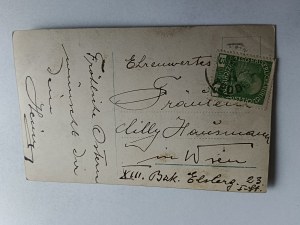 Fröhliche Ostern
wünscht dir
dein
Ehrenwertes
Fräulein
Milly Hausmann
in Wien
XIII. Bak. Elsberg. 23